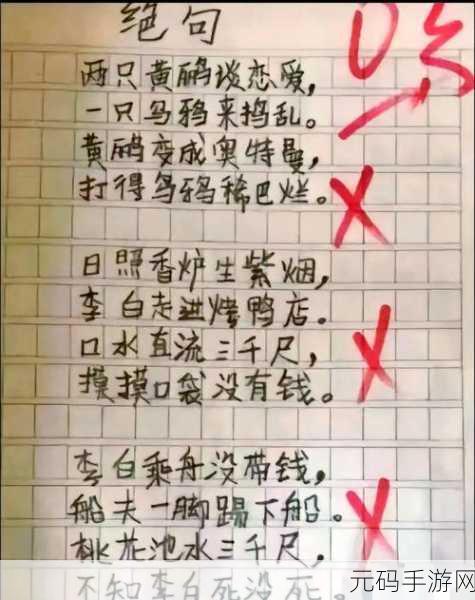 绝句
两只黄鹂谈恋爱，
一只乌鸦来捣乱。
黄鹂变成奥特曼，
打得乌鸦稀巴烂。
日照香炉生紫烟，
李白走进烤鸭店。
口水直流三千尺，
摸摸口袋没有钱。
李白乘舟没带钱，
船夫一脚踢下船。
桃花池水三千尺，
不知李白死没死。
元码手游网